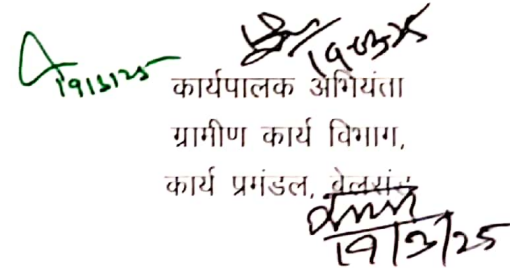 19/3/25
19/03/25
कार्यपालक अभियंता
ग्रामीण कार्य विभाग,
कार्य प्रमंडल, बेलसंड
19/3/25